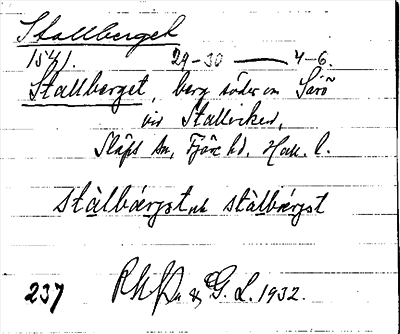 Stallberget
1541. 29-30 — 4-6.
Stallberget, berg söder om Särö
vid Stallviken,
Släps sn, Fjäre hd, Hall. l.
stàlbárgət och stàlbǽrgət
237 & G. L. 1932.